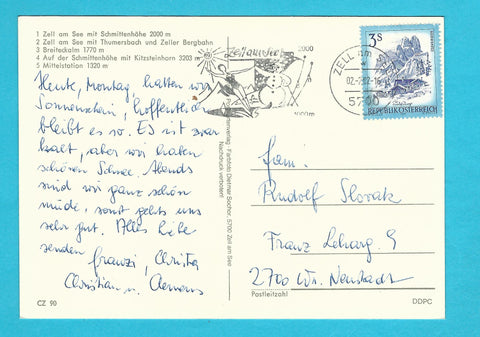 1 Zell am See mit Schmittenhöhe 2000 m
2 Zell am See mit Thumersbach und Zeller Bergbahn
3 Breiteckalm 1770 m
4 Auf der Schmittenhöhe mit Kitzsteinhorn 3203 m
5 Mittelstation 1320 m
Heute, Montag, hatten wir
Sonnenschein, hoffentlich
bleibt es so. Es ist zwar
kalt, aber wir haben
schönen Schnee. Abends
sind wir ganz schön
müde, sonst gehts uns
sehr gut. Alles liebe
senden Franzi, Christa
Christian u. Clemens
CZ 90
Farbfoto Dietmar Sochor, 5700 Zell am See
Nachdruck verboten!
Zell am See
2000
ZELL am
5700
3 S
REPUBLIK ÖSTERREICH
Fam.
Rudolf Slovak
Franz 9
2700 Wr. Neustadt
Postleitzahl
DDPC